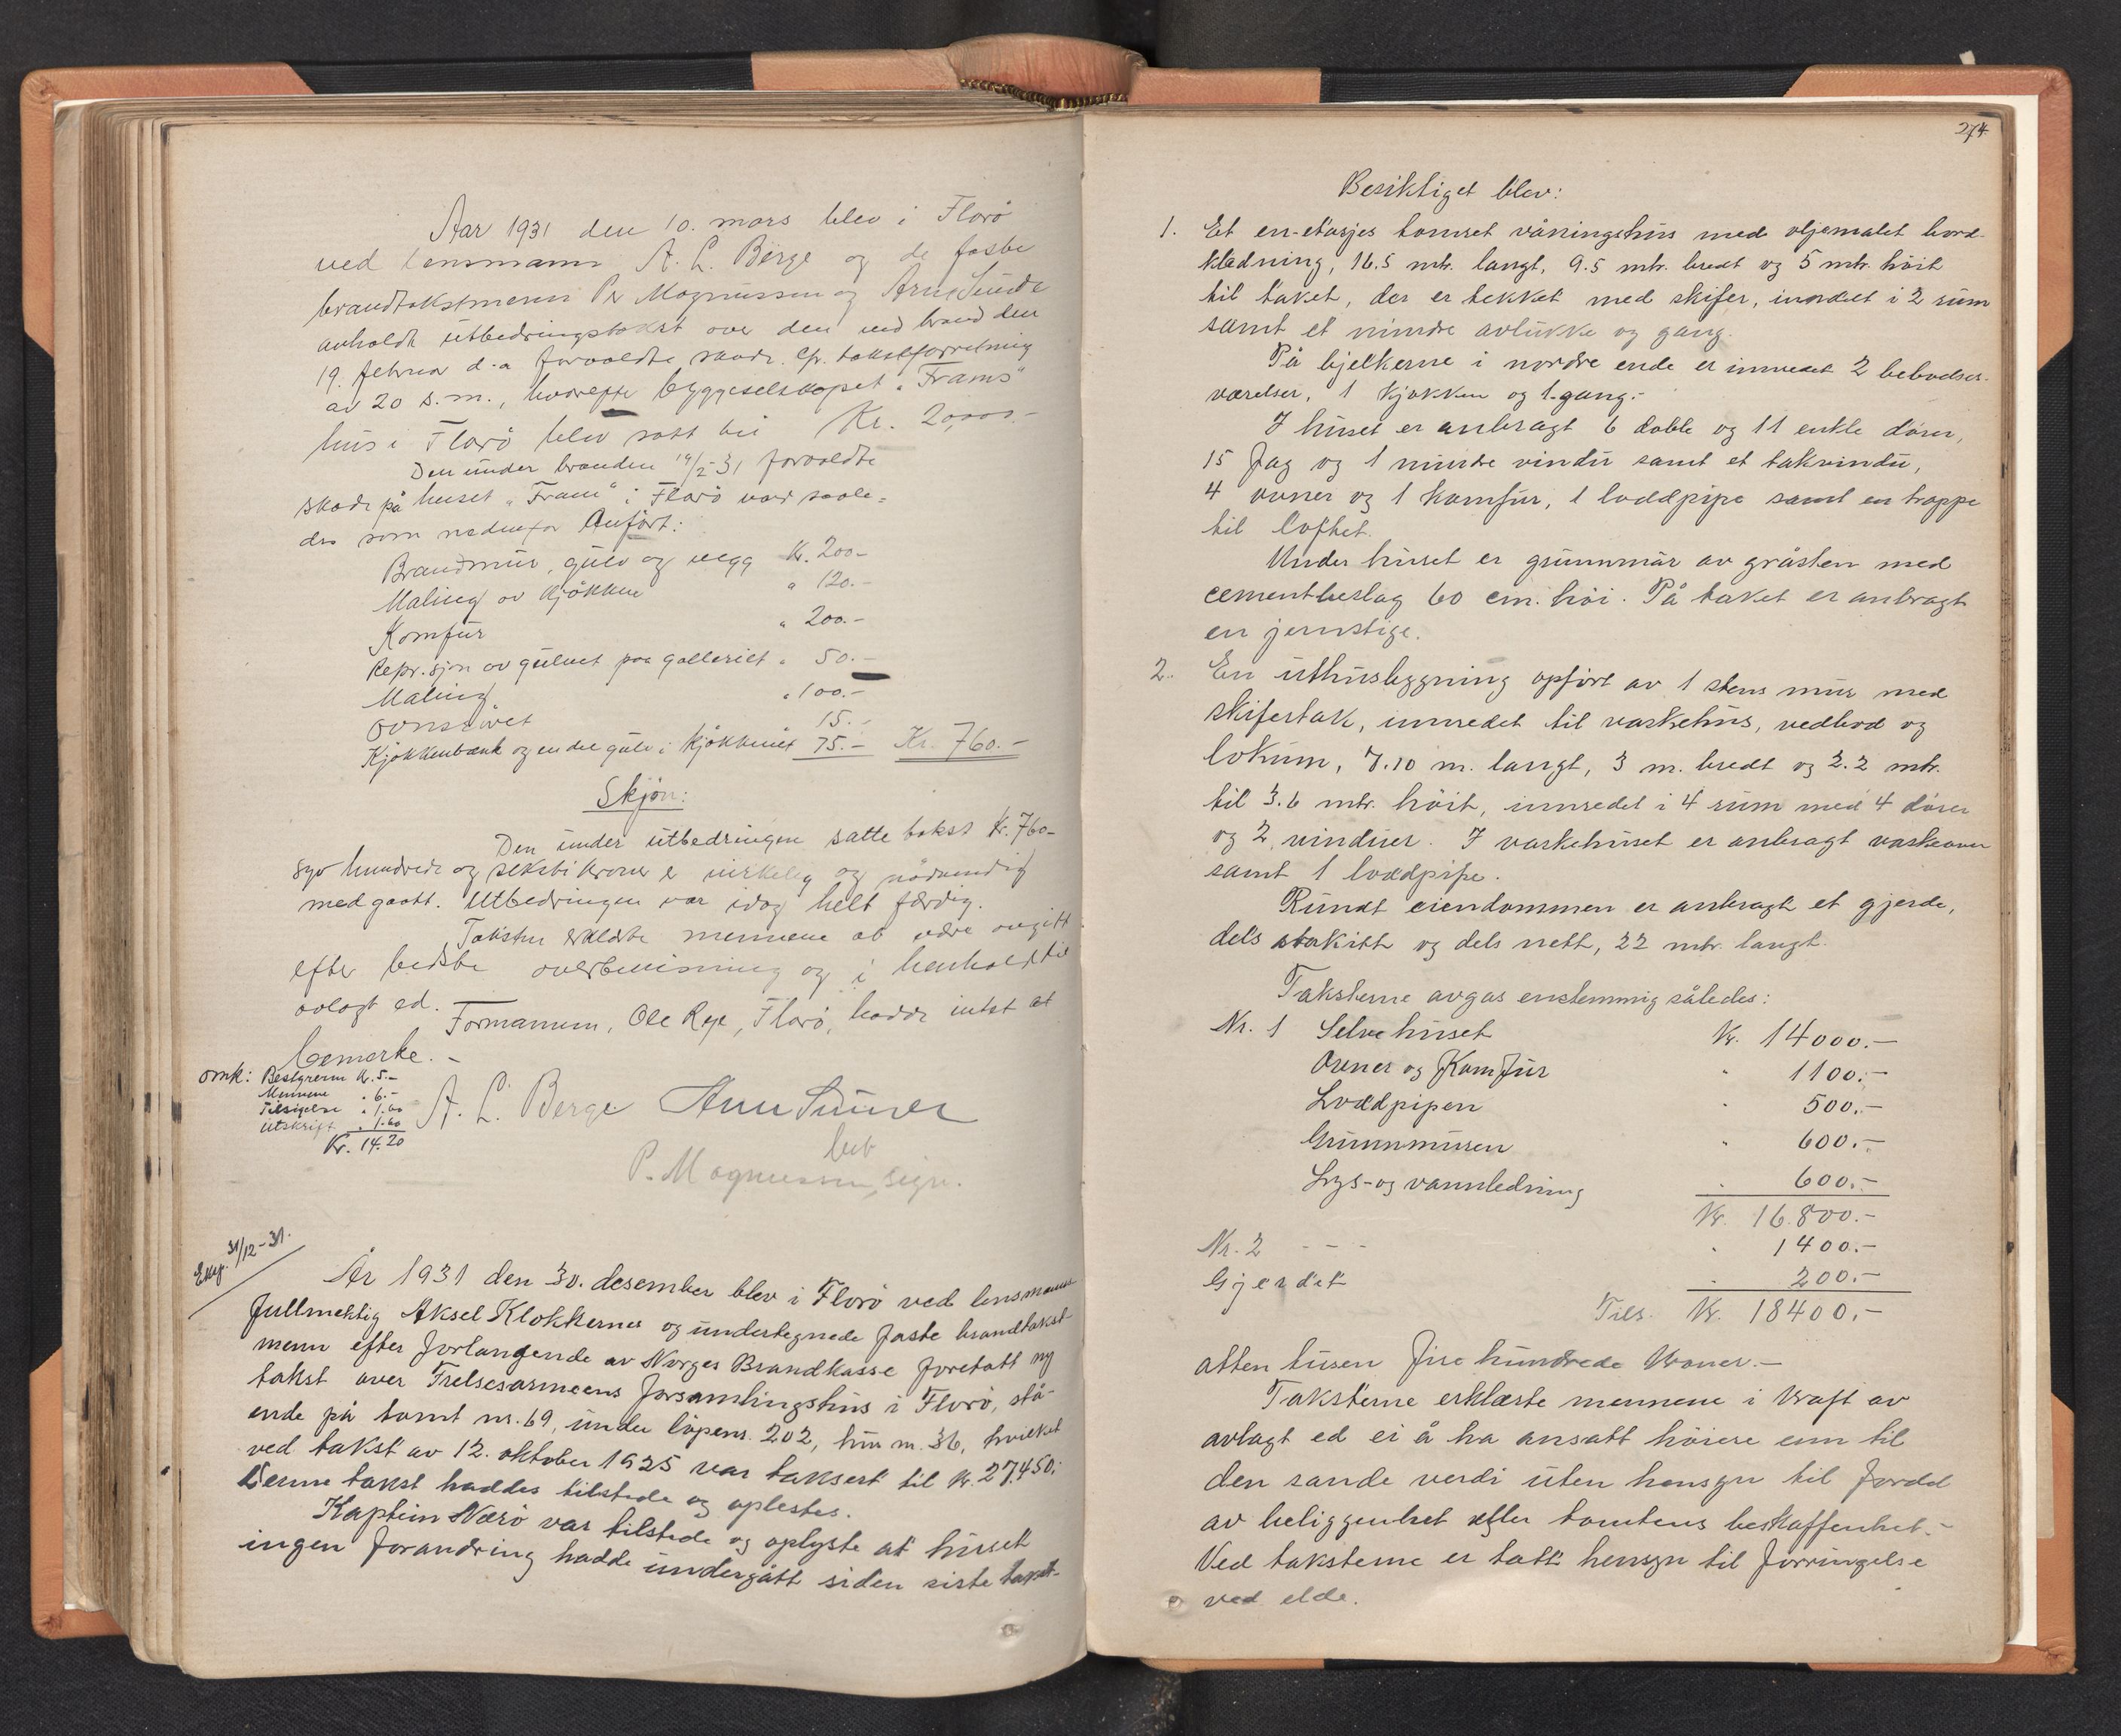 Aar 1931 den 10. mars blev i Florö
ved lensmann A. L. Berge og de faste
brandtakstmenn Per Magnussen og Arne Sunde
avholdt utbedringstakst over den ved brand den
19. februar d.a forvoldte skade. Cfr. takstforretning
av 20 s.m., hvorefter byggeselskapet "Frams"
hus i Florö blev satt til Kr. 20,000.-
Den under branden 19/2-31 forvoldte
skade på huset "Fram" i Florö var saale-
des som nedenfor Anført:
Brandmur, gulv og vegg Kr. 200.-
Maling av kjökken " 120.-
Komfur " 200.-
Repr.sjon av gulvet paa galleriet " 50.-
Maling " 100.-
Ovnsröret 15.-
Kjökkenbænk og en del gulv i kjökkenet 75.- Kr. 760.-
Skjön:
Den under utbedringen satte takst Kr. 760-
syv hundrede og seksti kroner er virkelig og nödvendig
medgaatt. Utbedringen var idag helt færdig.
Taksten erklærte mennene at være avgitt
efter bedste overbevisning og i henhold til
avlagt ed.
Formannen, Ole Reje, Florö, hadde intet at
bemerke. -
Omk: Bestyreren Kr. 5.-
Mennene " 6.-
Tilsigelse " 1.60
Utskrift " 1.60
Kr. 14.20
A. L. Berge Arne Sunde
P. Magnussen, sign.
Eksp. 31/12-31.
År 1931 den 30. desember blev i Florö ved lensmanns
fullmektig Aksel Klokkernes og undertegnede faste brandtakst-
menn efter forlangende av Norges Brandkasse foretatt ny
takst over Frelsesarmeens forsamlingshus i Florö, stå-
ende på tomt nr. 69, under löpenr. 202, hus nr. 36, hvilket
ved takst av 12. oktober 1925 var taksert til kr. 27450.-
Denne takst haddes tilstede og oplestes.
Kaptein Nærö var tilstede og oplyste at huset
ingen forandring hadde undergått siden siste takst.-
274.
Besiktiget blev:
1. Et en-etasjes tömret våningshus med oljemalet bord-
kledning, 16.5 mtr. langt, 9.5 mtr. bredt og 5 mtr. höit
til taket, der er tekket med skifer, inndelt i 2 rum
samt et mindre avlukke og gang.
På bjelkerne i nordre ende er innredet 2 beboelses-
værelser, 1 kjökken og 1 gang.-
I huset er anbragt 6 doble og 11 enkle dörer,
15 fag og 1 mindre vindu samt et takvindu,
4 ovner og 1 komfur, 1 loddpipe samt en trappe
til loftet.
Under huset er grunnmur av gråsten med
cementbeslag 60 cm. höi. På taket er anbragt
en jernstige.
2. En uthusbygning opfört av 1 stens mur med
skifertak, innredet til vaskehus, vedbod og
lokum, 7.10 m. langt, 3 m. bredt og 2.2 mtr.
til 3.6 mtr. höit, innredet i 4 rum med 4 dörer
og 2 vinduer. I vaskehuset er anbragt vaskeovn
samt 1 loddpipe.
Rundt eiendommen er anbragt et gjerde,
dels stakitt og dels nett, 22 mtr. langt.
Taksterne avgas enstemmig således:
Nr. 1 Selve huset Kr. 14000.-
Ovner og Komfur " 1100.-
Loddpipen " 500.-
Grunnmuren " 600.-
Lys- og vannledning " 600.-
Kr. 16.800.-
Nr. 2 - - - " 1400.-
Gjerdet " 200.-
Tils. Kr. 18400.-
atten tusen fire hundrede kroner.-
Taksterne erklærte mennene i kraft av
avlagt ed ei å ha ansatt höiere enn til
den sande verdi uten hensyn til fordel
av beliggenhet eller tomtens beskaffenhet.-
Ved taksterne er tatt hensyn til forringelse
ved elde.